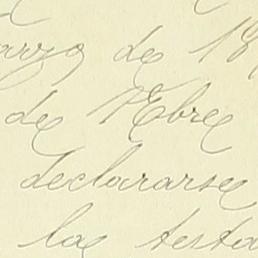 de 18
de Ebre
declararse
las testa